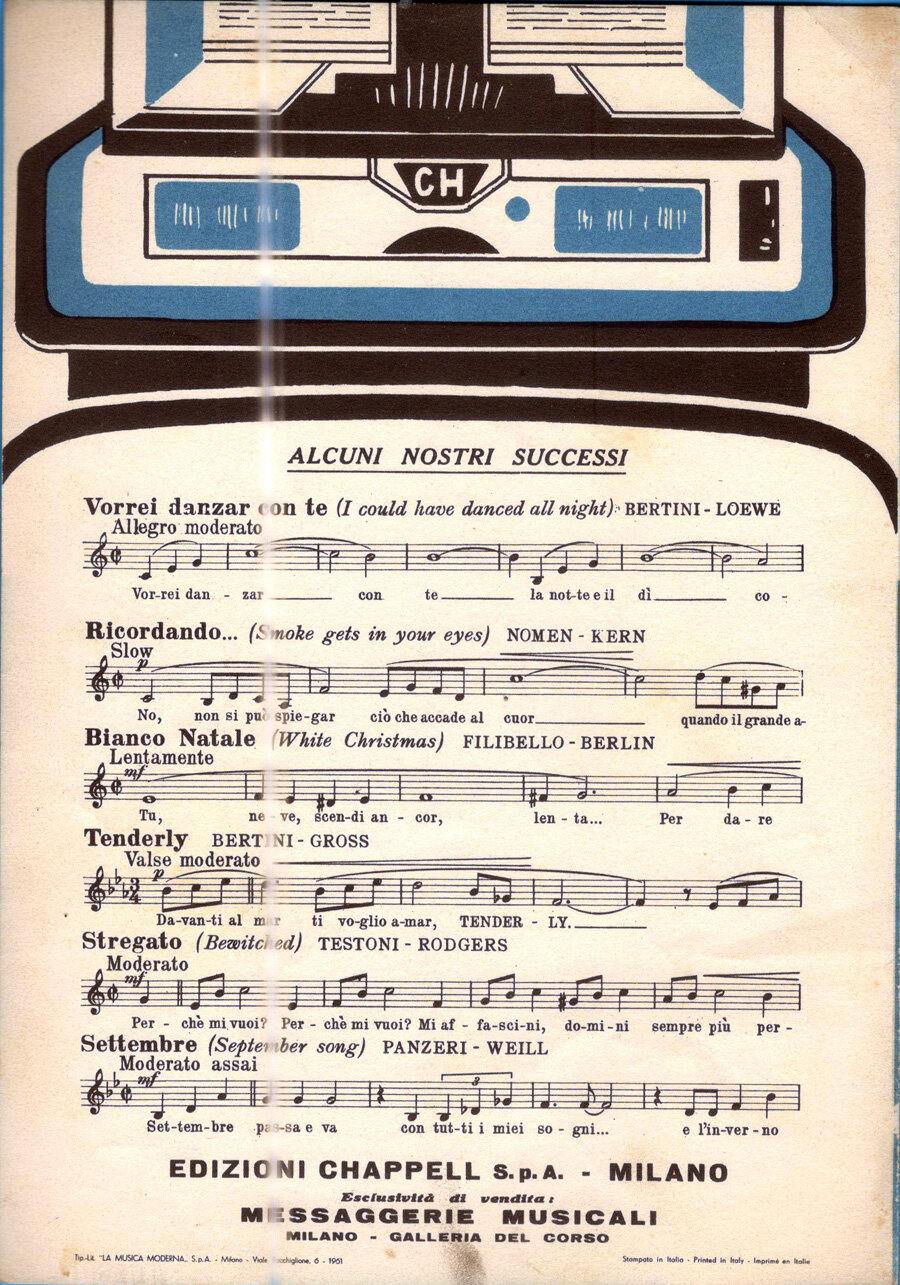 CH
ALCUNI NOSTRI SUCCESSI
Vorrei danzar con te (I could have danced all night) - BERTINI - LOEWE
Allegro moderato
Vor-rei dan - zar con te la not-te e il dì co -
Ricordando... (Smoke gets in your eyes) NOMEN - KERN
Slow
p
No, non si può spie-gar ciò che accade al cuor quando il grande a-
Bianco Natale (White Christmas) FILIBELLO - BERLIN
Lentamente
mf
Tu, ne - ve, scen-di an - cor, len - ta... Per da - re
Tenderly BERTINI - GROSS
Valse moderato
p
3
4
Da-van-ti al mar ti vo-glio a-mar, TENDER - LY.
Stregato (Bewitched) TESTONI - RODGERS
Moderato
mf
Per - chè mi vuoi? Per - chè mi vuoi? Mi af - fa-sci-ni, do-mi-ni sempre più per -
Settembre (September song) PANZERI - WEILL
Moderato assai
mf
3
Set-tem-bre pas-sa e va con tut-ti i miei so - gni... e l'in-ver-no
EDIZIONI CHAPPELL S.p.A. - MILANO
Esclusività di vendita:
MESSAGGERIE MUSICALI
MILANO - GALLERIA DEL CORSO
Tip.-Lit. "LA MUSICA MODERNA" S.p.A. - Milano - Viale 6 - 1961
Stampato in Italia - Printed in Italy - Imprimé en Italie